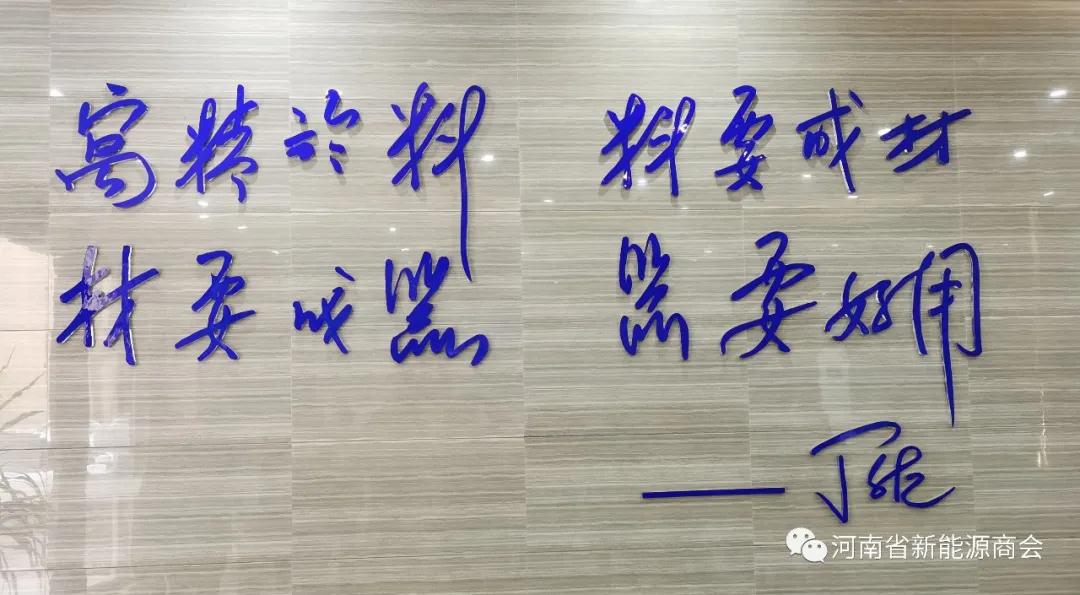 寓精於料 料要成材
材要成器 器要好用
——丁
河南省新能源商会